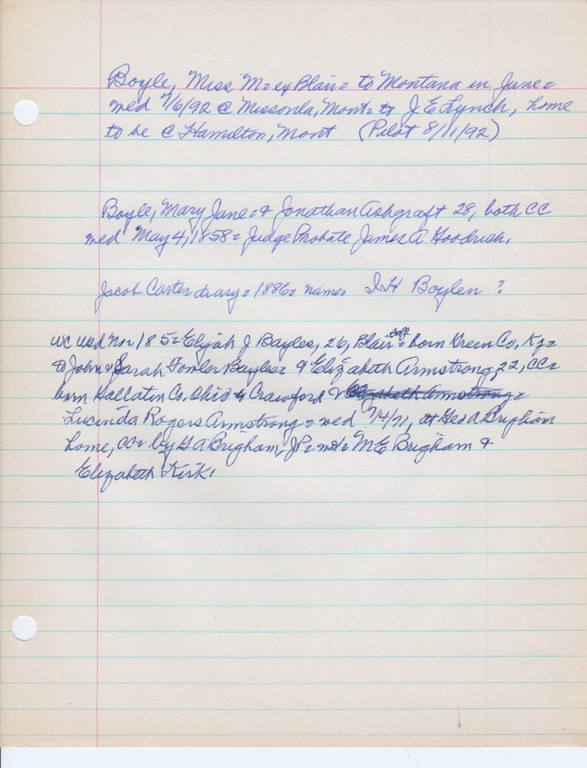 Boyle, Miss M = ex Blair = to Montana in June =
wed 7/6/92 @ Missoula, Mont = to J E Lynch, home
to be @ Hamilton, Mont (Pilot 8/11/92)
Boyle, Mary Jane = & Jonathan Ashgraft 28, both CC
wed May 4, 1858 = Judge Probate James A Goodrich.
Jacob Carter diary = 1886 = names I H Boylen ?
WC Wed No 185 = Elijah J Bayles, 26, Blair = born Green Co, Ky =
to John & Sarah Fowler Bayles = & Elizabeth Armstrong, 22, CC =
born Gallatin Co, Ohio to Crawford & Elizabeth Armstrong =
Lucinda Rogers Armstrong = wed 7/4/71, at Geo A Brigham
home, CC = by G A Brigham, JP = wit = M E Brigham &
Elizabeth Kirk.